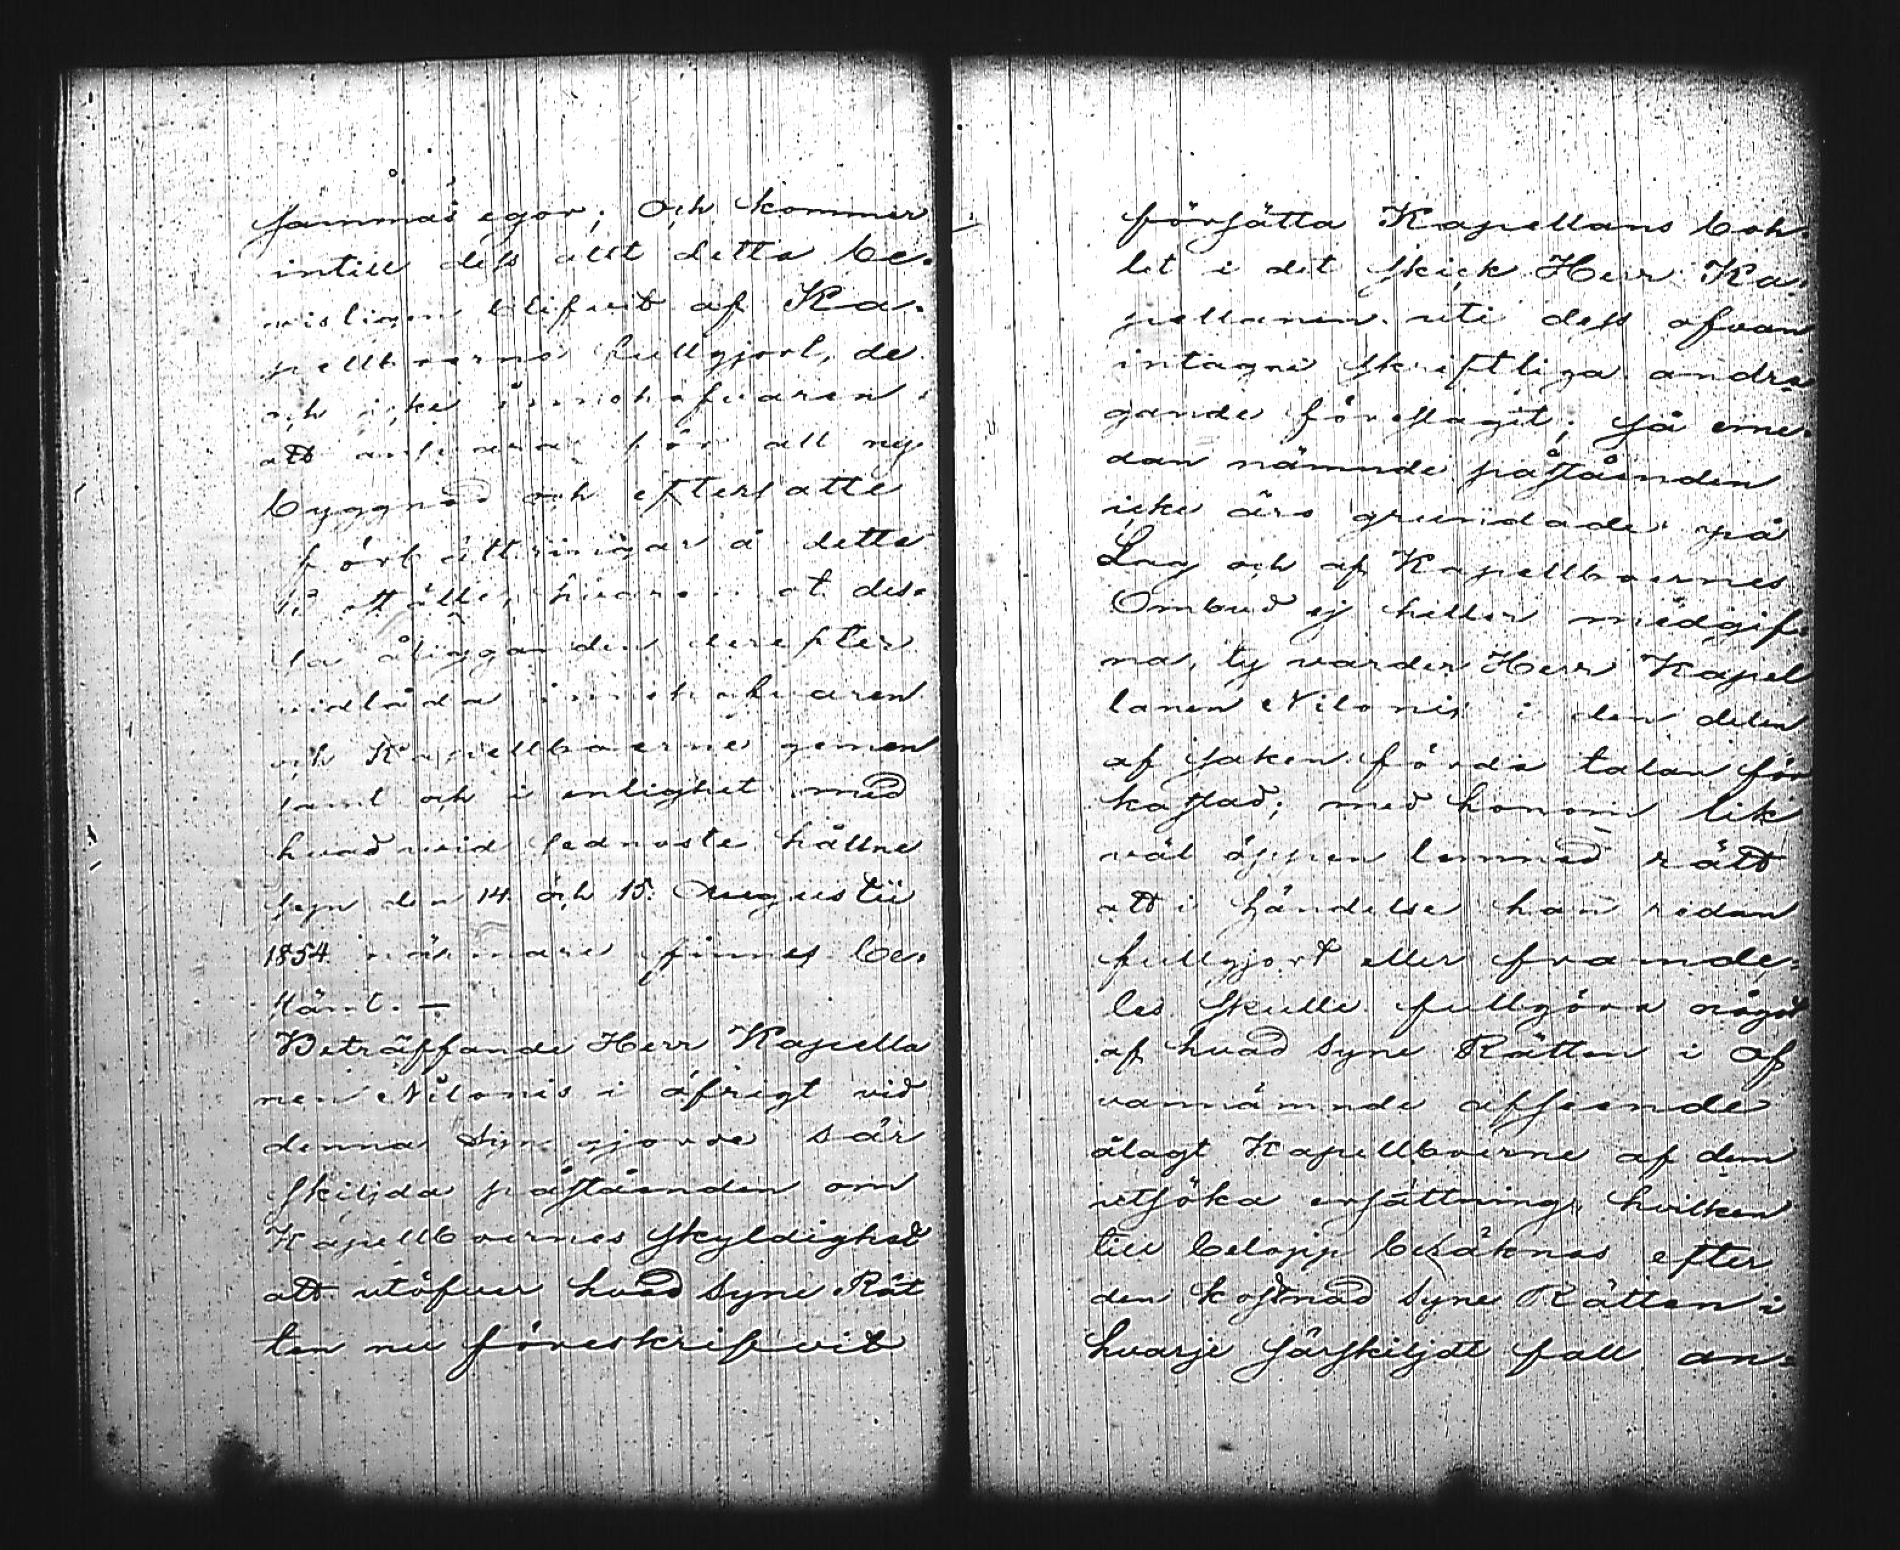 sammas egor; Och kommer
intill dess allt detta be-
visligen blifvit af Ka-
pellboerne fullgjort, de
och icke innehafvaren
att ansvara för all ny
byggnad och eftersatte
förbättringar å detta
Boställe, hvaremot des-
sa åligganden derefter
vidlåda innehafvaren
och Kapellboerne gemen
samt och i enlighet med
hvad vid sednaste hållne
syn den 14 och 15 Augustii
1854 närmare finnes be-
stämt. —
Beträffande Herr Kapella
nen Nilonis i öfrigt vid
denna Syn gjorde sär
skiljda påståenden om
Kapellboernes skyldighet
att utöfver hvad Syne Rät
ten nu föreskrifvit
försätta Kapellans boh-
let i det skick Herr Ka-
pellanen uti dess ofvan
intagne skriftliga andra
gande föreslagit; så eme-
dan nämnde påståenden
icke äro grundade på
Lag och af Kapellboernes
Ombud ej heller medgif-
na, ty varder Herr Kapel
lanen Nilonis i den delen
af saken förda talan för
kastad; med honom lik
väl öppen lemnad rätt
att i händelse han redan
fullgjort eller framde-
les skulle fullgöra något
af hvad Syne Rätten i of
vannämnde afseende
ålagt Kapellboerne af dem
utsöka ersättning, hvilken
till belopp beräknas efter
den kostnad Syne Rätten i
hvarje särskiljdt fall an-